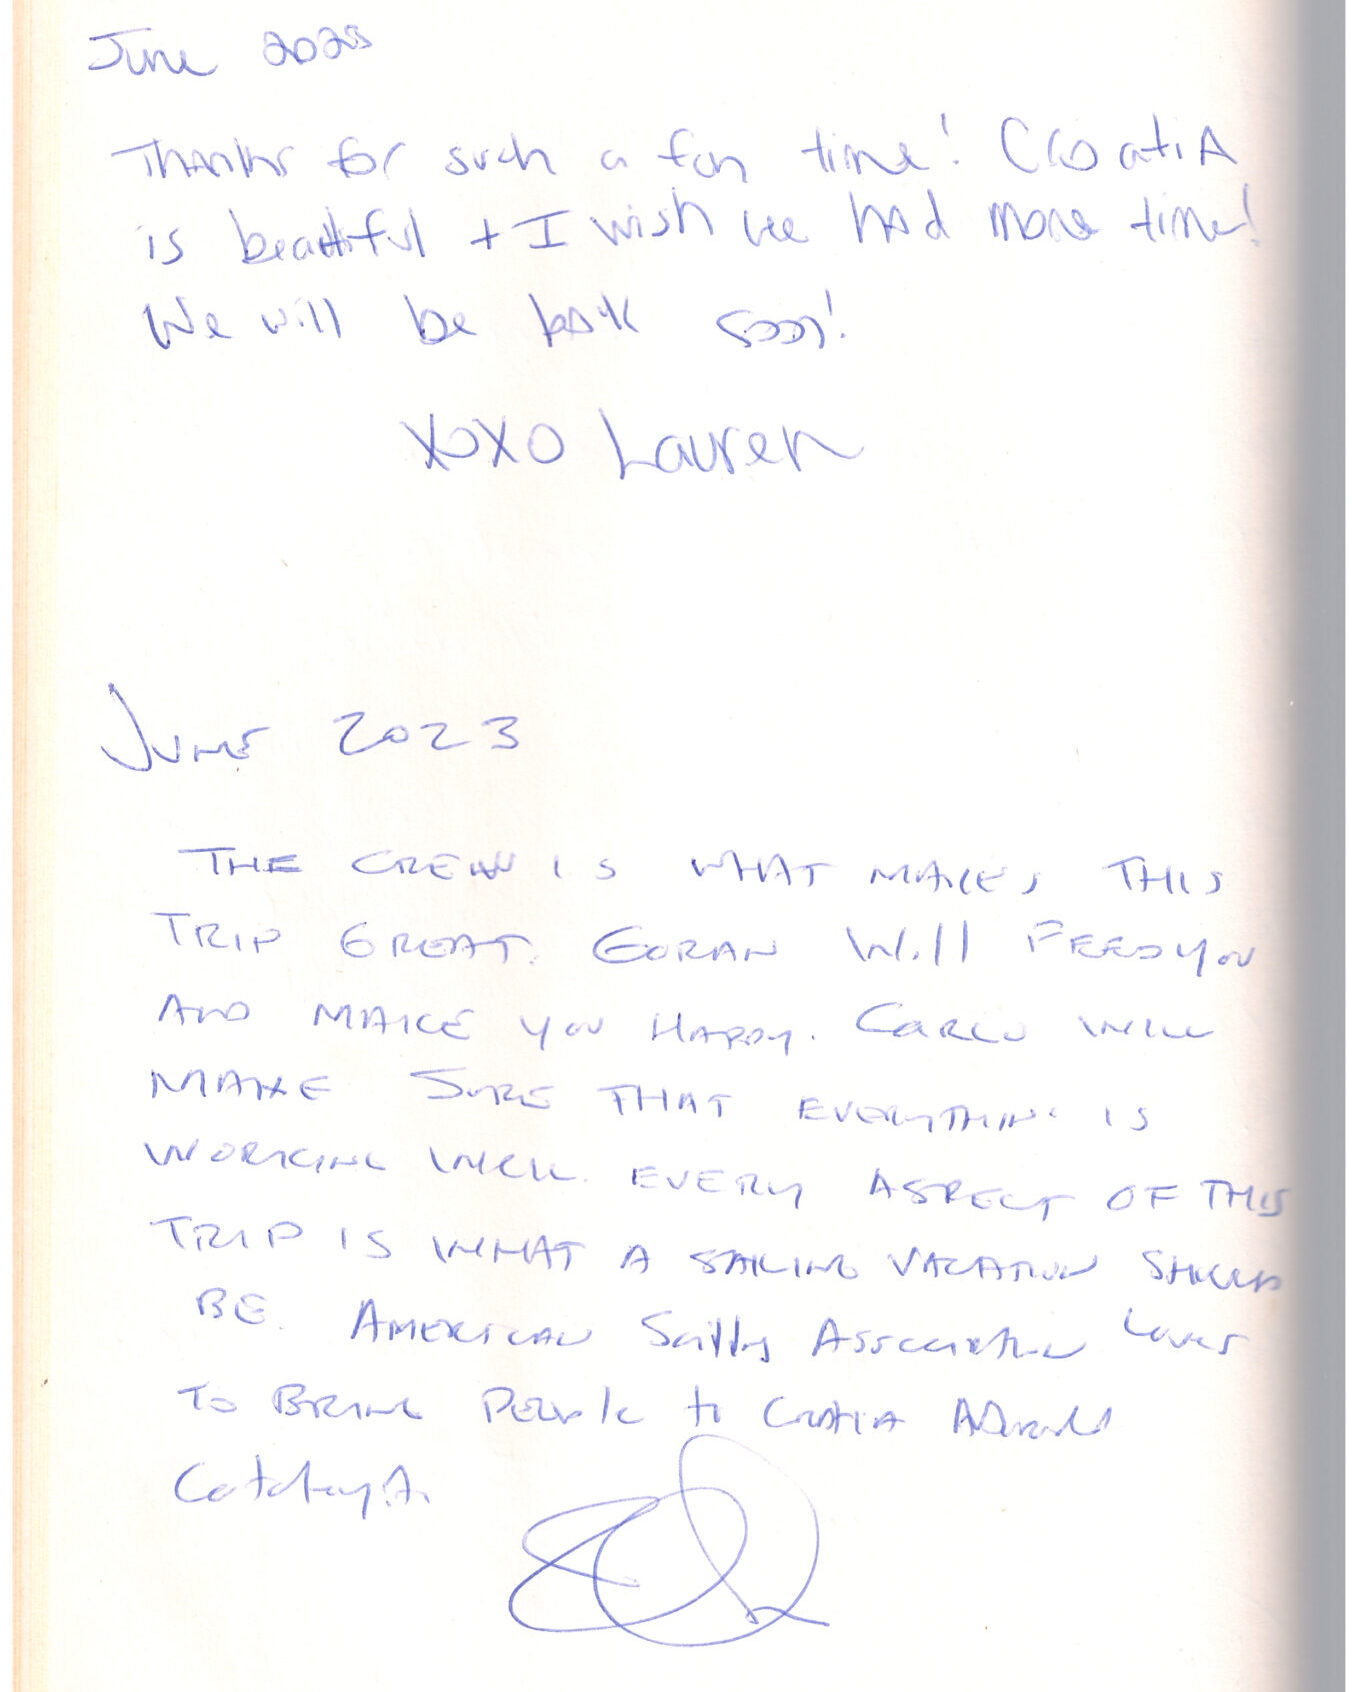 June
Thanks for such a fun time! CroatiA
is beautiful + I wish we had more time!
We will be back soon!
XOXO Lauren
JUNE 2023
THE CREW IS WHAT MAKES THIS
TRIP GREAT. GORAN Will FEED YOU
AND MAKE YOU HAPPY. CARLO WILL
MAKE SURE THAT EVERYTHING IS
WORKING WELL. EVERY ASPECT OF THIS
TRIP IS WHAT A SAILING VACATION SHOULD
BE. AMERICAN Sailing ASSOCIATION LOVES
TO BRING PEOPLE to CROATIA ABOARD